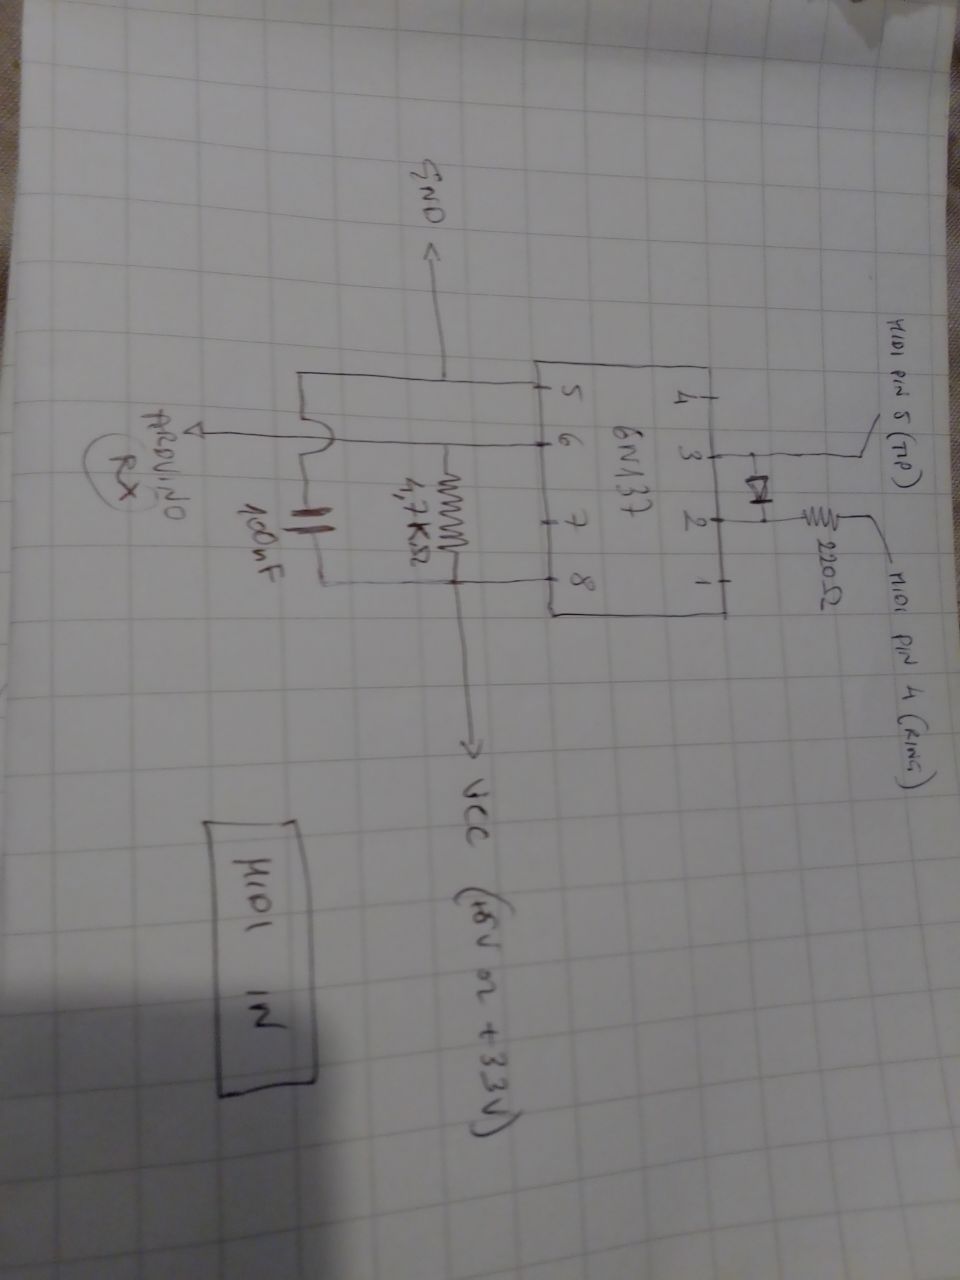 MIDI PIN 5 (TIP)
MIDI PIN 4 (RING)
220Ω
4 3 2 1
6N137
5 6 7 8
VCC (+5V or +3.3V)
GND
4,7KΩ
100nF
MIDI IN
ARDUINO
RX